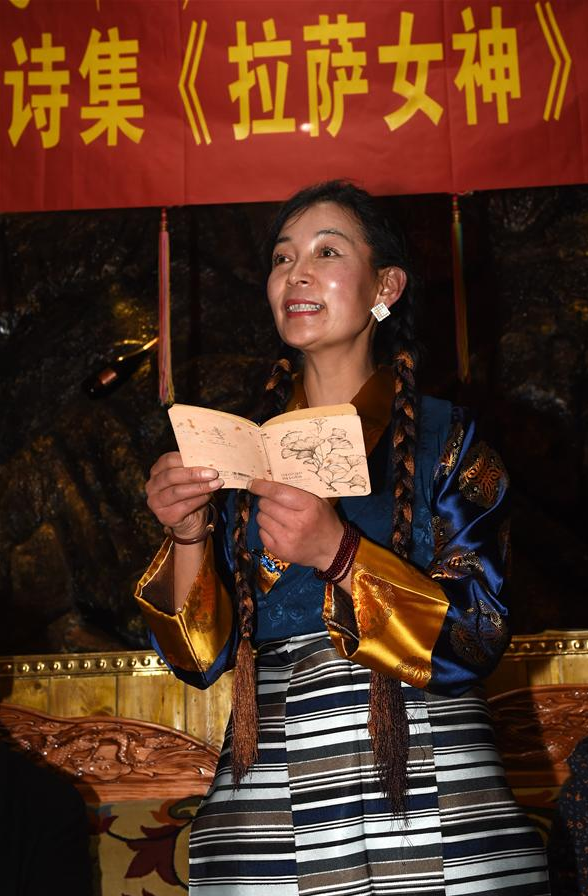 诗集《拉萨女神》